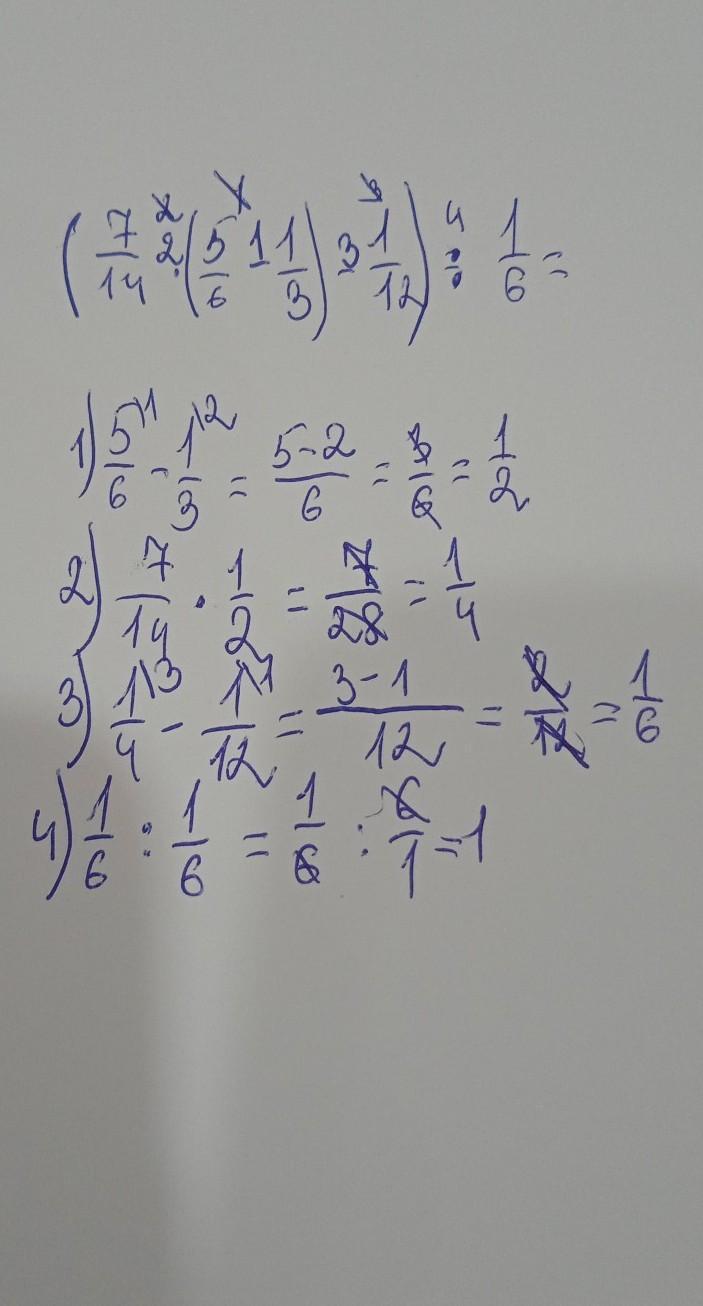 (7/14 2· (5/6 1- 1/3) 3- 1/12) 4: 1/6 =
1) 5/6 \1 - 1/3 \2 = 5-2/6 = 3/6 = 1/2
2) 7/14 · 1/2 = 7/28 = 1/4
3) 1/4 \3 - 1/12 \1 = 3-1/12 = 2/12 = 1/6
4) 1/6 : 1/6 = 1/6 : 6/1 = 1